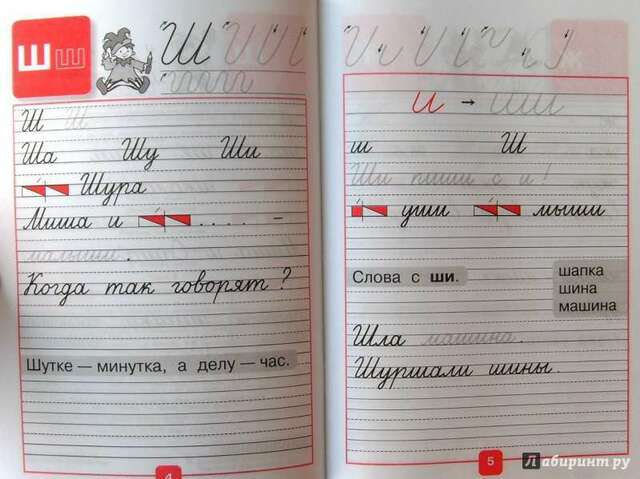 Ш ш Ш
Ш Ш
Ша Шу Ши
Шура
Миша и . . . . –
малыши .
Когда так говорят ?
Шутке — минутка, а делу — час.
4
и → ши
ш Ш
Ши пиши с и !
уши мыши
Слова с ши.
шапка
шина
машина
Шла машина .
Шуршали шины.
5
Лабиринт.ру